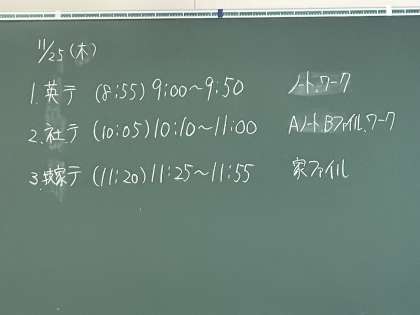 11/25(木)
1.英テ (8:55) 9:00～9:50 ノート、ワーク
2.社テ (10:05) 10:10～11:00 AノートBファイル、ワーク
3.技家テ (11:20) 11:25～11:55 家ファイル